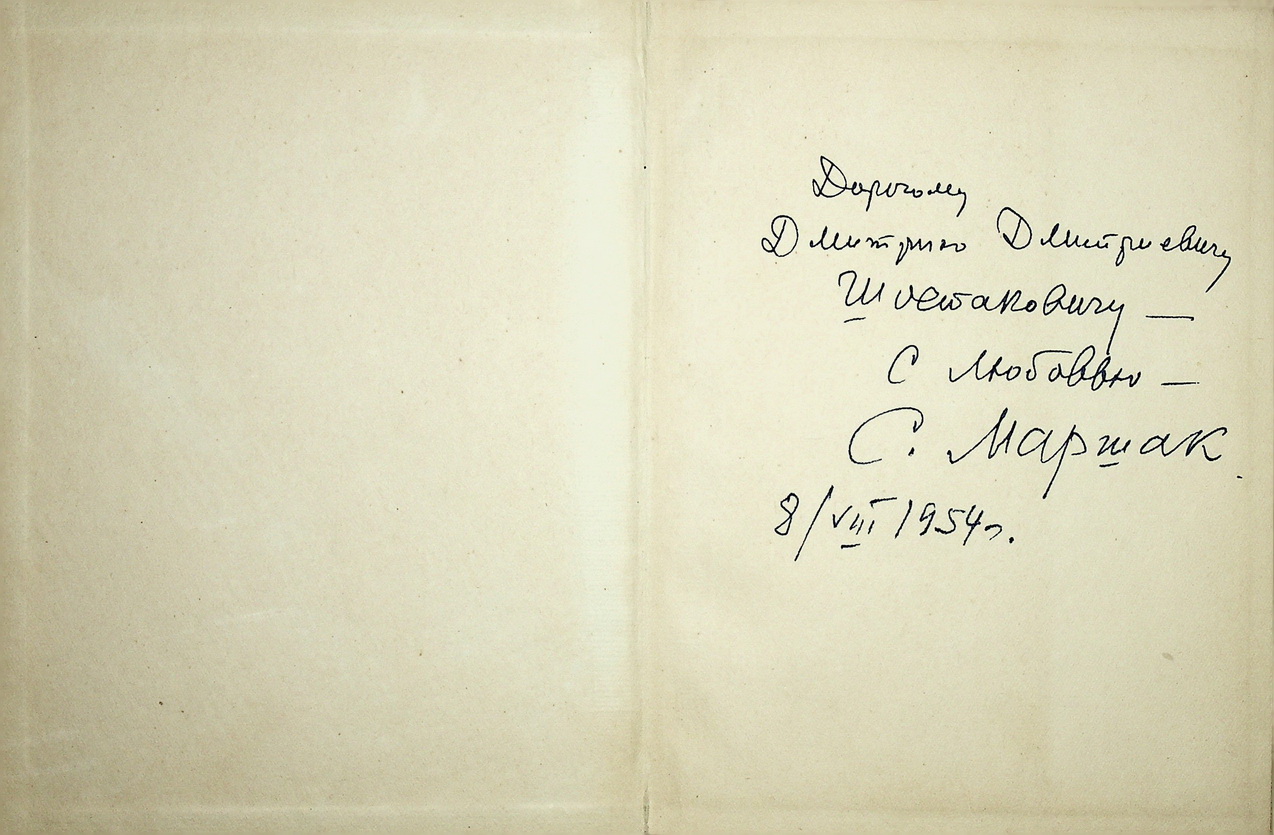 Дорогому
Дмитрию Дмитриевичу
Шостаковичу —
С любовью —
С. Маршак
8/VIII 1954г.